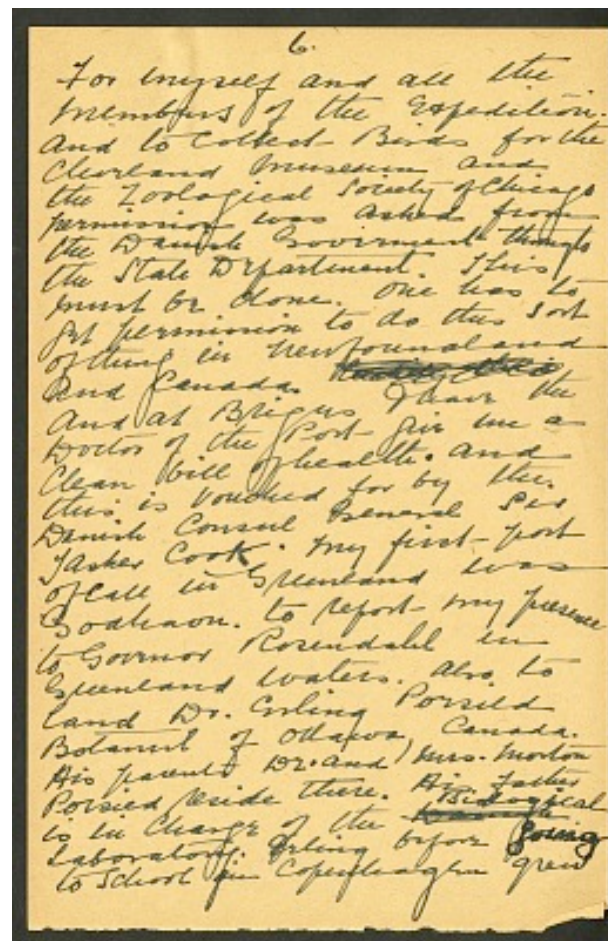 6.
For myself and all the
members of the Expedition.
And to Collect Birds for the
Cleveland Museum and
the Zoological Society of Chicago
permission was asked from
the Danish Goverment through
the State Department. This
must be done. One has to
get permission to do this sort
of thing in Newfoundland
and Canada.
And at Brigus I have the
Doctor of the Port give me a
Clean bill of health. and
this is vouched for by the
Danish Consul General Sir
Tasker Cook. My first port
of Call in Greenland was
Godhavn. to report my presence
to Governor Rosendahl in
Greenland waters. also to
land Dr. Erling Porsild
Botanist of Ottawa, Canada.
His parents Dr. and Mrs. Morton
Porsild reside there. His father
is in Charge of the Biological
Laboratory. Erling before going
to School in Copenhagen grew